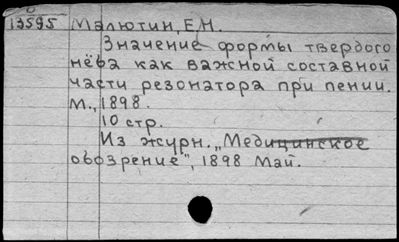 13595 Малютин, Е.Н.
Значение формы твердого
нёба как важной составной
части резонатора при пении.
М., 1898.
10 стр.
Из журн. „Медицинское
обозрение", 1898 Май.